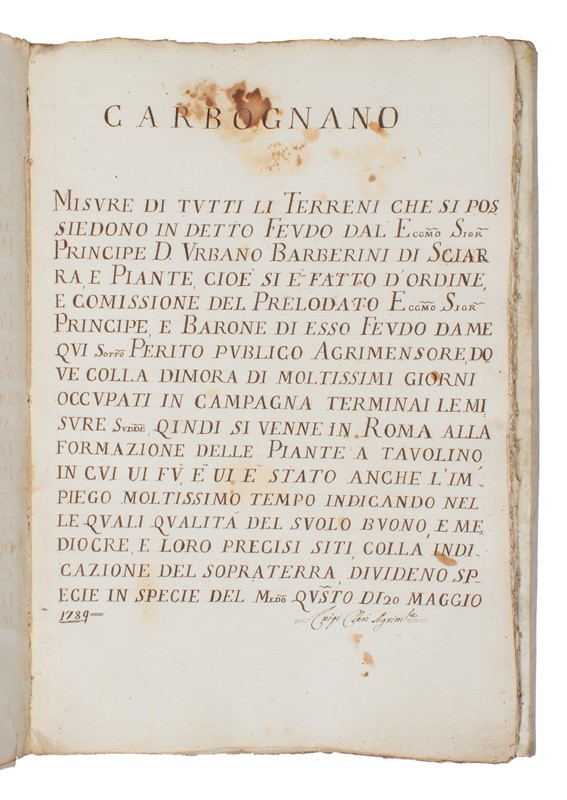 CARBOGNANO
MISVRE DI TVTTI LI TERRENI CHE SI POS
SIEDONO IN DETTO FEVDO DAL ECCMO SIGR
PRINCIPE D. VRBANO BARBERINI DI SCIAR
RA, E PIANTE, CIOE' SI E' FATTO D'ORDINE,
E COMISSIONE DEL PRELODATO ECCMO SIGR
PRINCIPE, E BARONE DI ESSO FEVDO DA ME
QVI SOTTO PERITO PVBLICO AGRIMENSORE, DO
VE COLLA DIMORA DI MOLTISSIMI GIORNI
OCCVPATI IN CAMPAGNA TERMINAI LE MI
SVRE SVDDE, QINDI SI VENNE IN ROMA ALLA
FORMAZIONE DELLE PIANTE A TAVOLINO
IN CVI UI FV, E' UI E' STATO ANCHE L'IM-
PIEGO MOLTISSIMO TEMPO INDICANDO NEL
LE QVALI QVALITÁ DEL SVOLO BVONO, E ME
DIOCRE, E LORO PRECISI SITI, COLLA INDI-
CAZIONE DEL SOPRATERRA, DIVIDENO SP-
ECIE IN SPECIE DEL MLDÕ QVSTO DI 20 MAGGIO
1789=
Agrimre